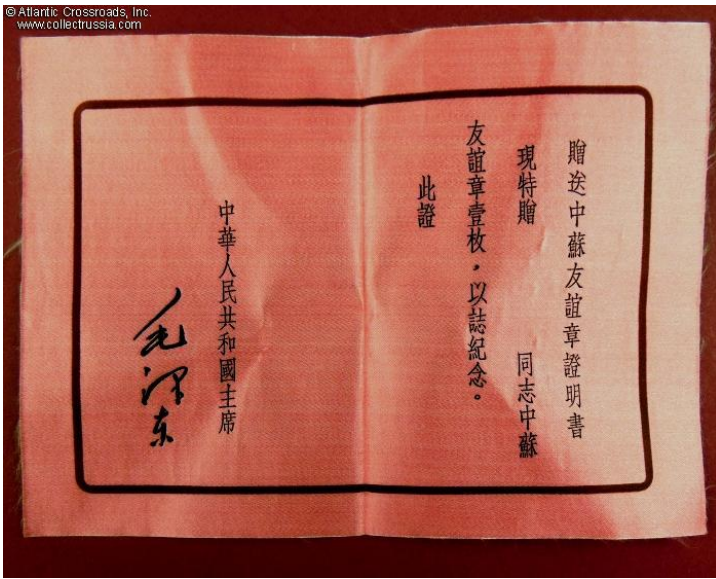 © Atlantic Crossroads, Inc.
www.collectrussia.com
贈送中蘇友誼章證明書
現特贈 同志中蘇
友誼章壹枚，以誌紀念。
此證
中華人民共和國主席
毛泽东